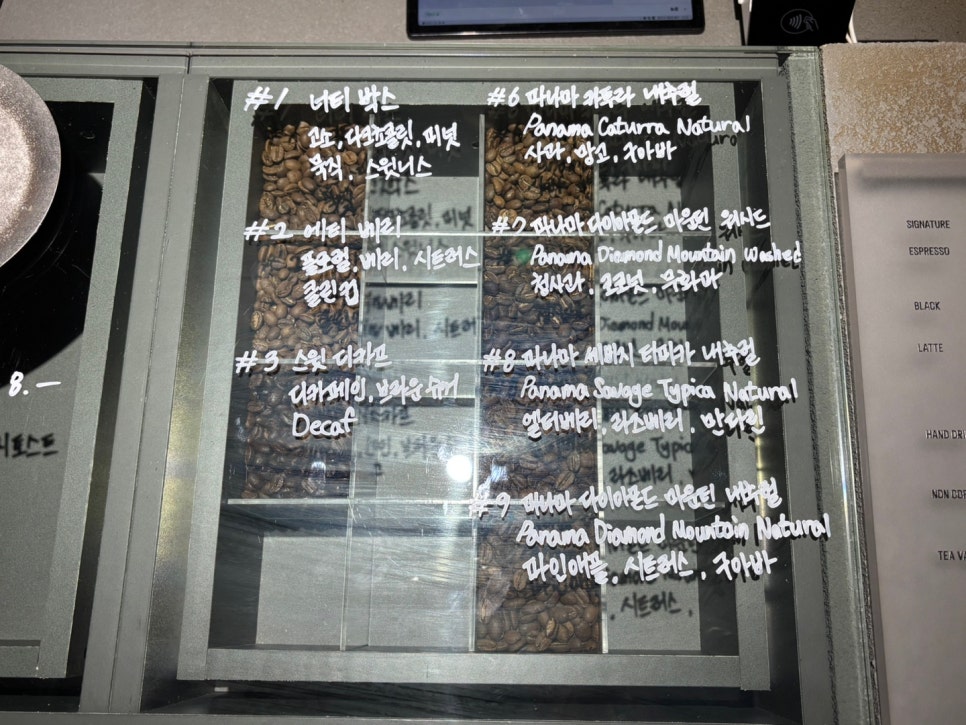 #1 너티 박스
고소, 다크초콜릿, 피넛
묵직, 스윗니스
#2 에티 베리
플로럴, 베리, 시트러스
클린컵
#3 스윗 디카프
디카페인, 브라운슈거
Decaf
#6 파나마 카투라 내추럴
Panama Caturra Natural
사과, 망고, 구아바
#7 파나마 다이아몬드 마운틴 워시드
Panama Diamond Mountain Washed
청사과, 코코넛,
#8 파나마 세비지 티피카 내추럴
Panama Savage Typica Natural
엘더베리, 라즈베리, 만다린
#9 파나마 다이아몬드 마운틴 내추럴
Panama Diamond Mountain Natural
파인애플, 시트러스, 구아바
8.—
토스트
SIGNATURE
ESPRESSO
BLACK
LATTE
HAND DRI
NON COF
TEA VA